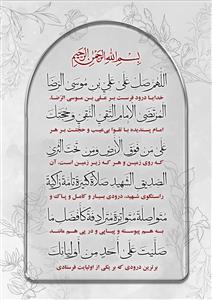 بسم الله الرحمن الرحیم
اللهم صل علی علی بن موسی الرضا
خدایا درود فرست بر علی بن موسی الرضا،
المرتضی الإمام التقی النقی و حجتک
امام پسندیده با تقوا بی‌عیب و حجتت بر هر
علی من فوق الأرض ومن تحت الثری
که روی زمین و هر که زیر زمین است، آن
الصدیق الشهید صلاة کثیرة تامة زاکیة
راستگوی شهید، درودی بسیار و کامل و پاک و
متواصلة متواترة مترادفة کأفضل ما
به هم پیوسته و پیاپی و در پی هم مانند
صلیت علی أحد من أولیائک
برترین درودی که بر یکی از اولیایت فرستادی